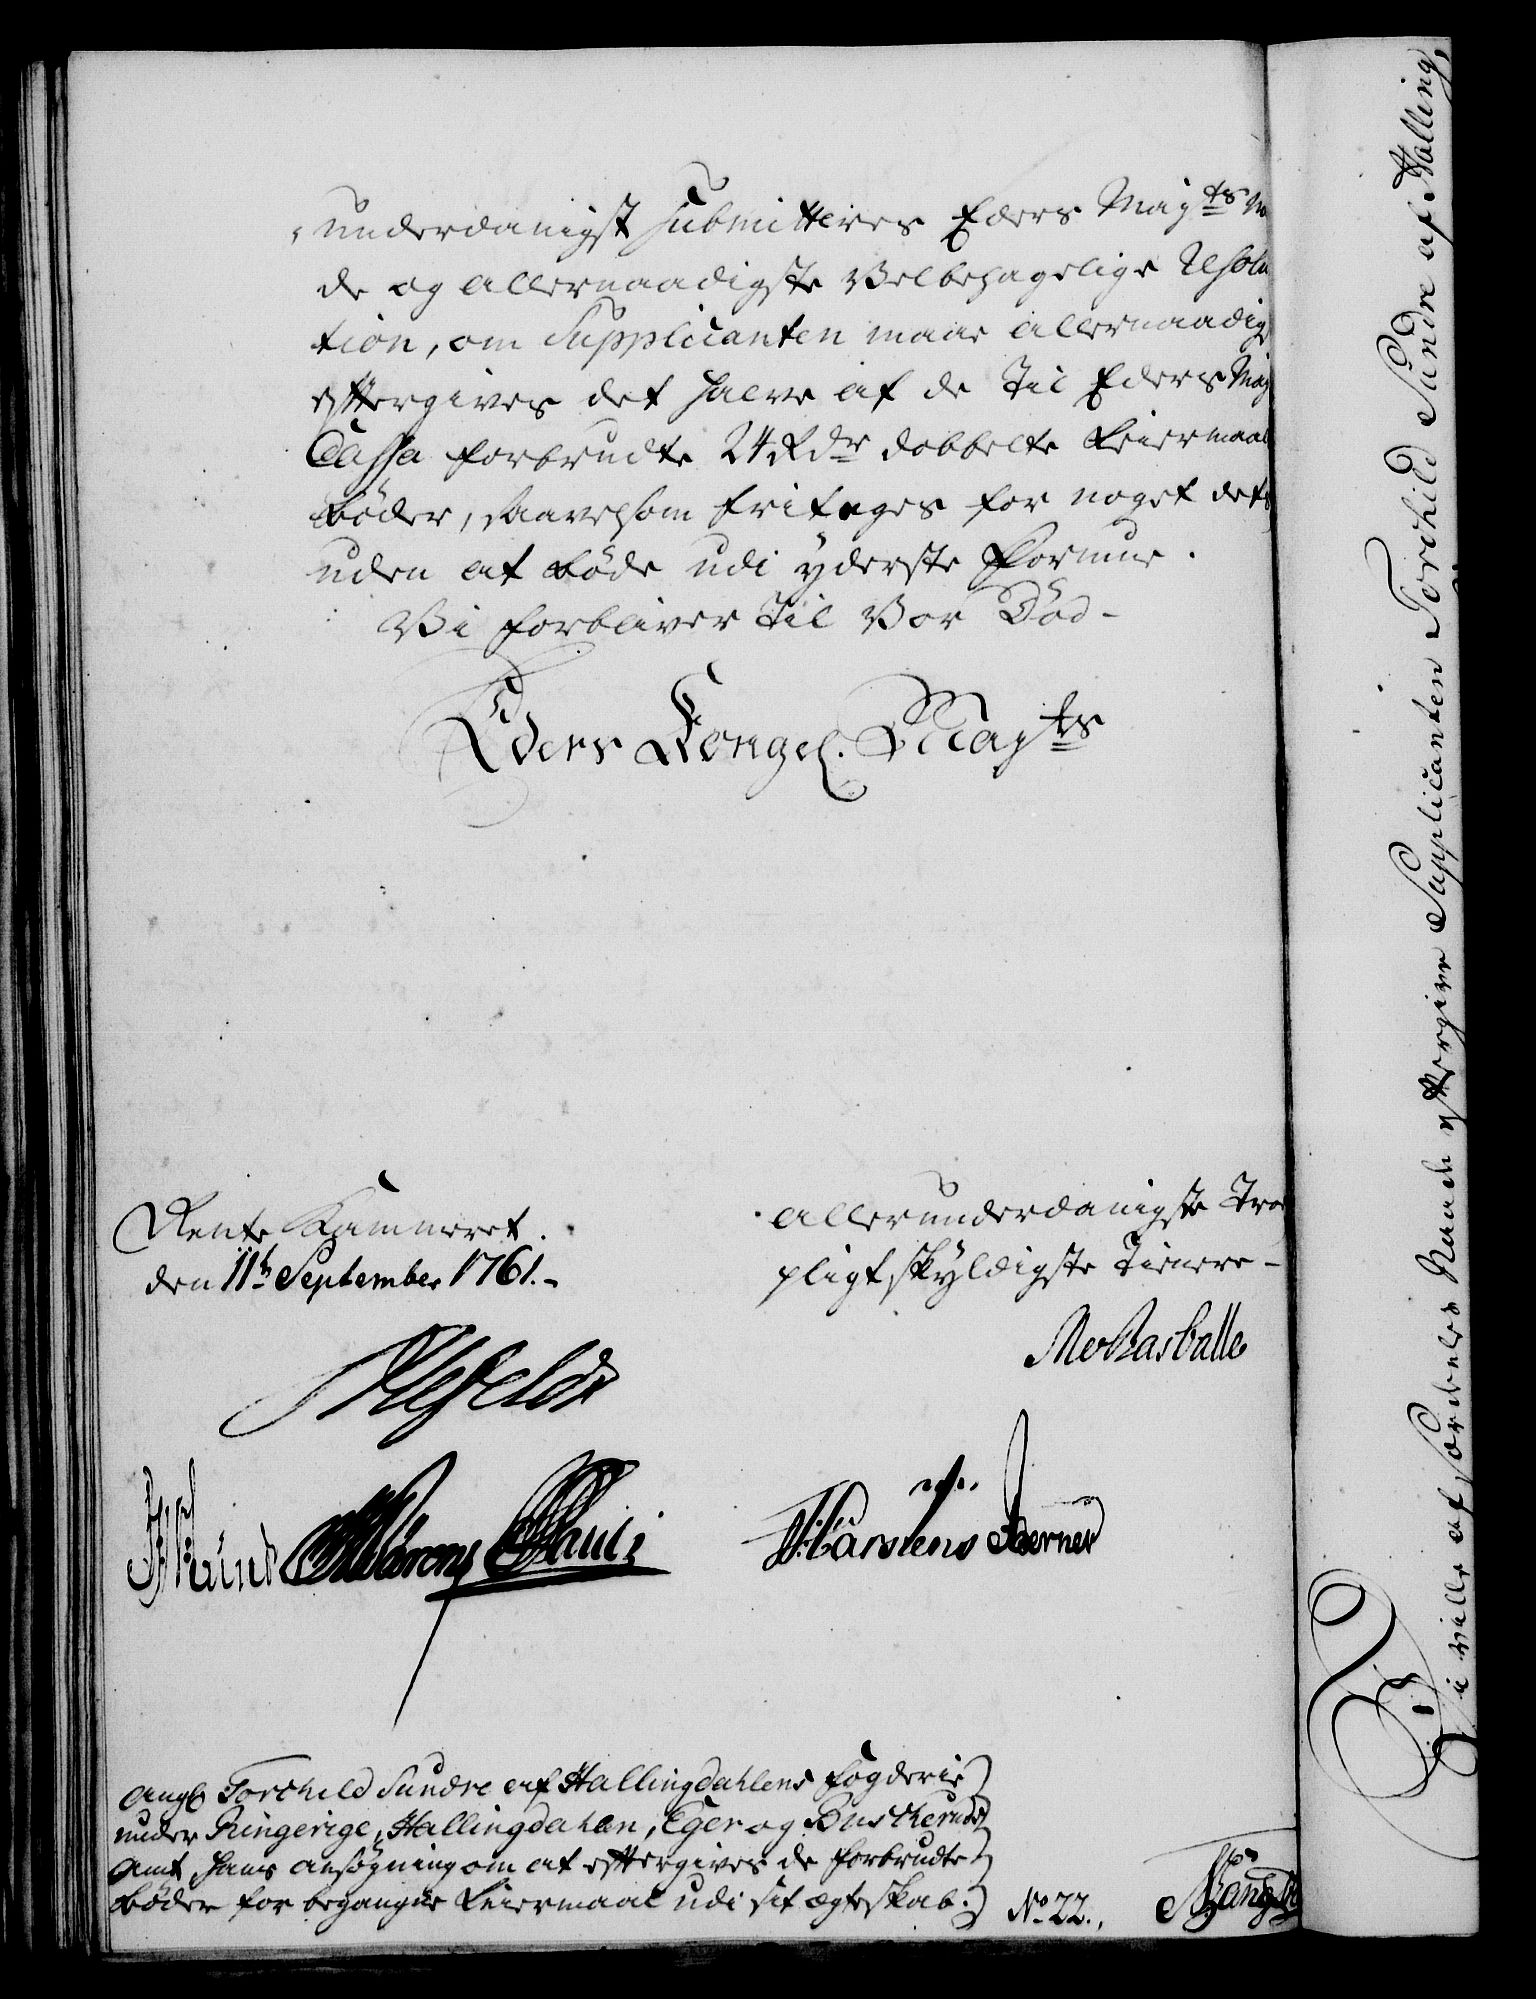 underdanigst submitteres Eders Mayts Naa
de og allernaadigste Velbehagelige Resolu
tion, om Supplicanten maae allernaadigst
eftergives det halve af de til Eders May
Cassa forbrudte 24 Rdr dobbelte Leiermaals
bøder, saavelsom fritages for noget des
uden at bøde udi yderste Formue.
Vi forbliver til Vor Død-
Eders Kongel. Mayts
Rente Kammeret.
den 11te September 1761.-
allerunderdanigste Troe
pligtskyldigste Tienere-
Ahlefeldt
Rasballe
Pauli
Carstens Berner
Angl Torchild Sundre af Hallingdahlens fogderie
under Ringerige, Hallingdahlen, Eger og Buscherud
Amt, hans ansøgning om at eftergives de forbrudte
bøder for begangne Leiermaal udi sit ægteskab.
No. 22.,
Vi ville af særdeles Naade eftergive Supplicanten Torchild Sundre af Halling,